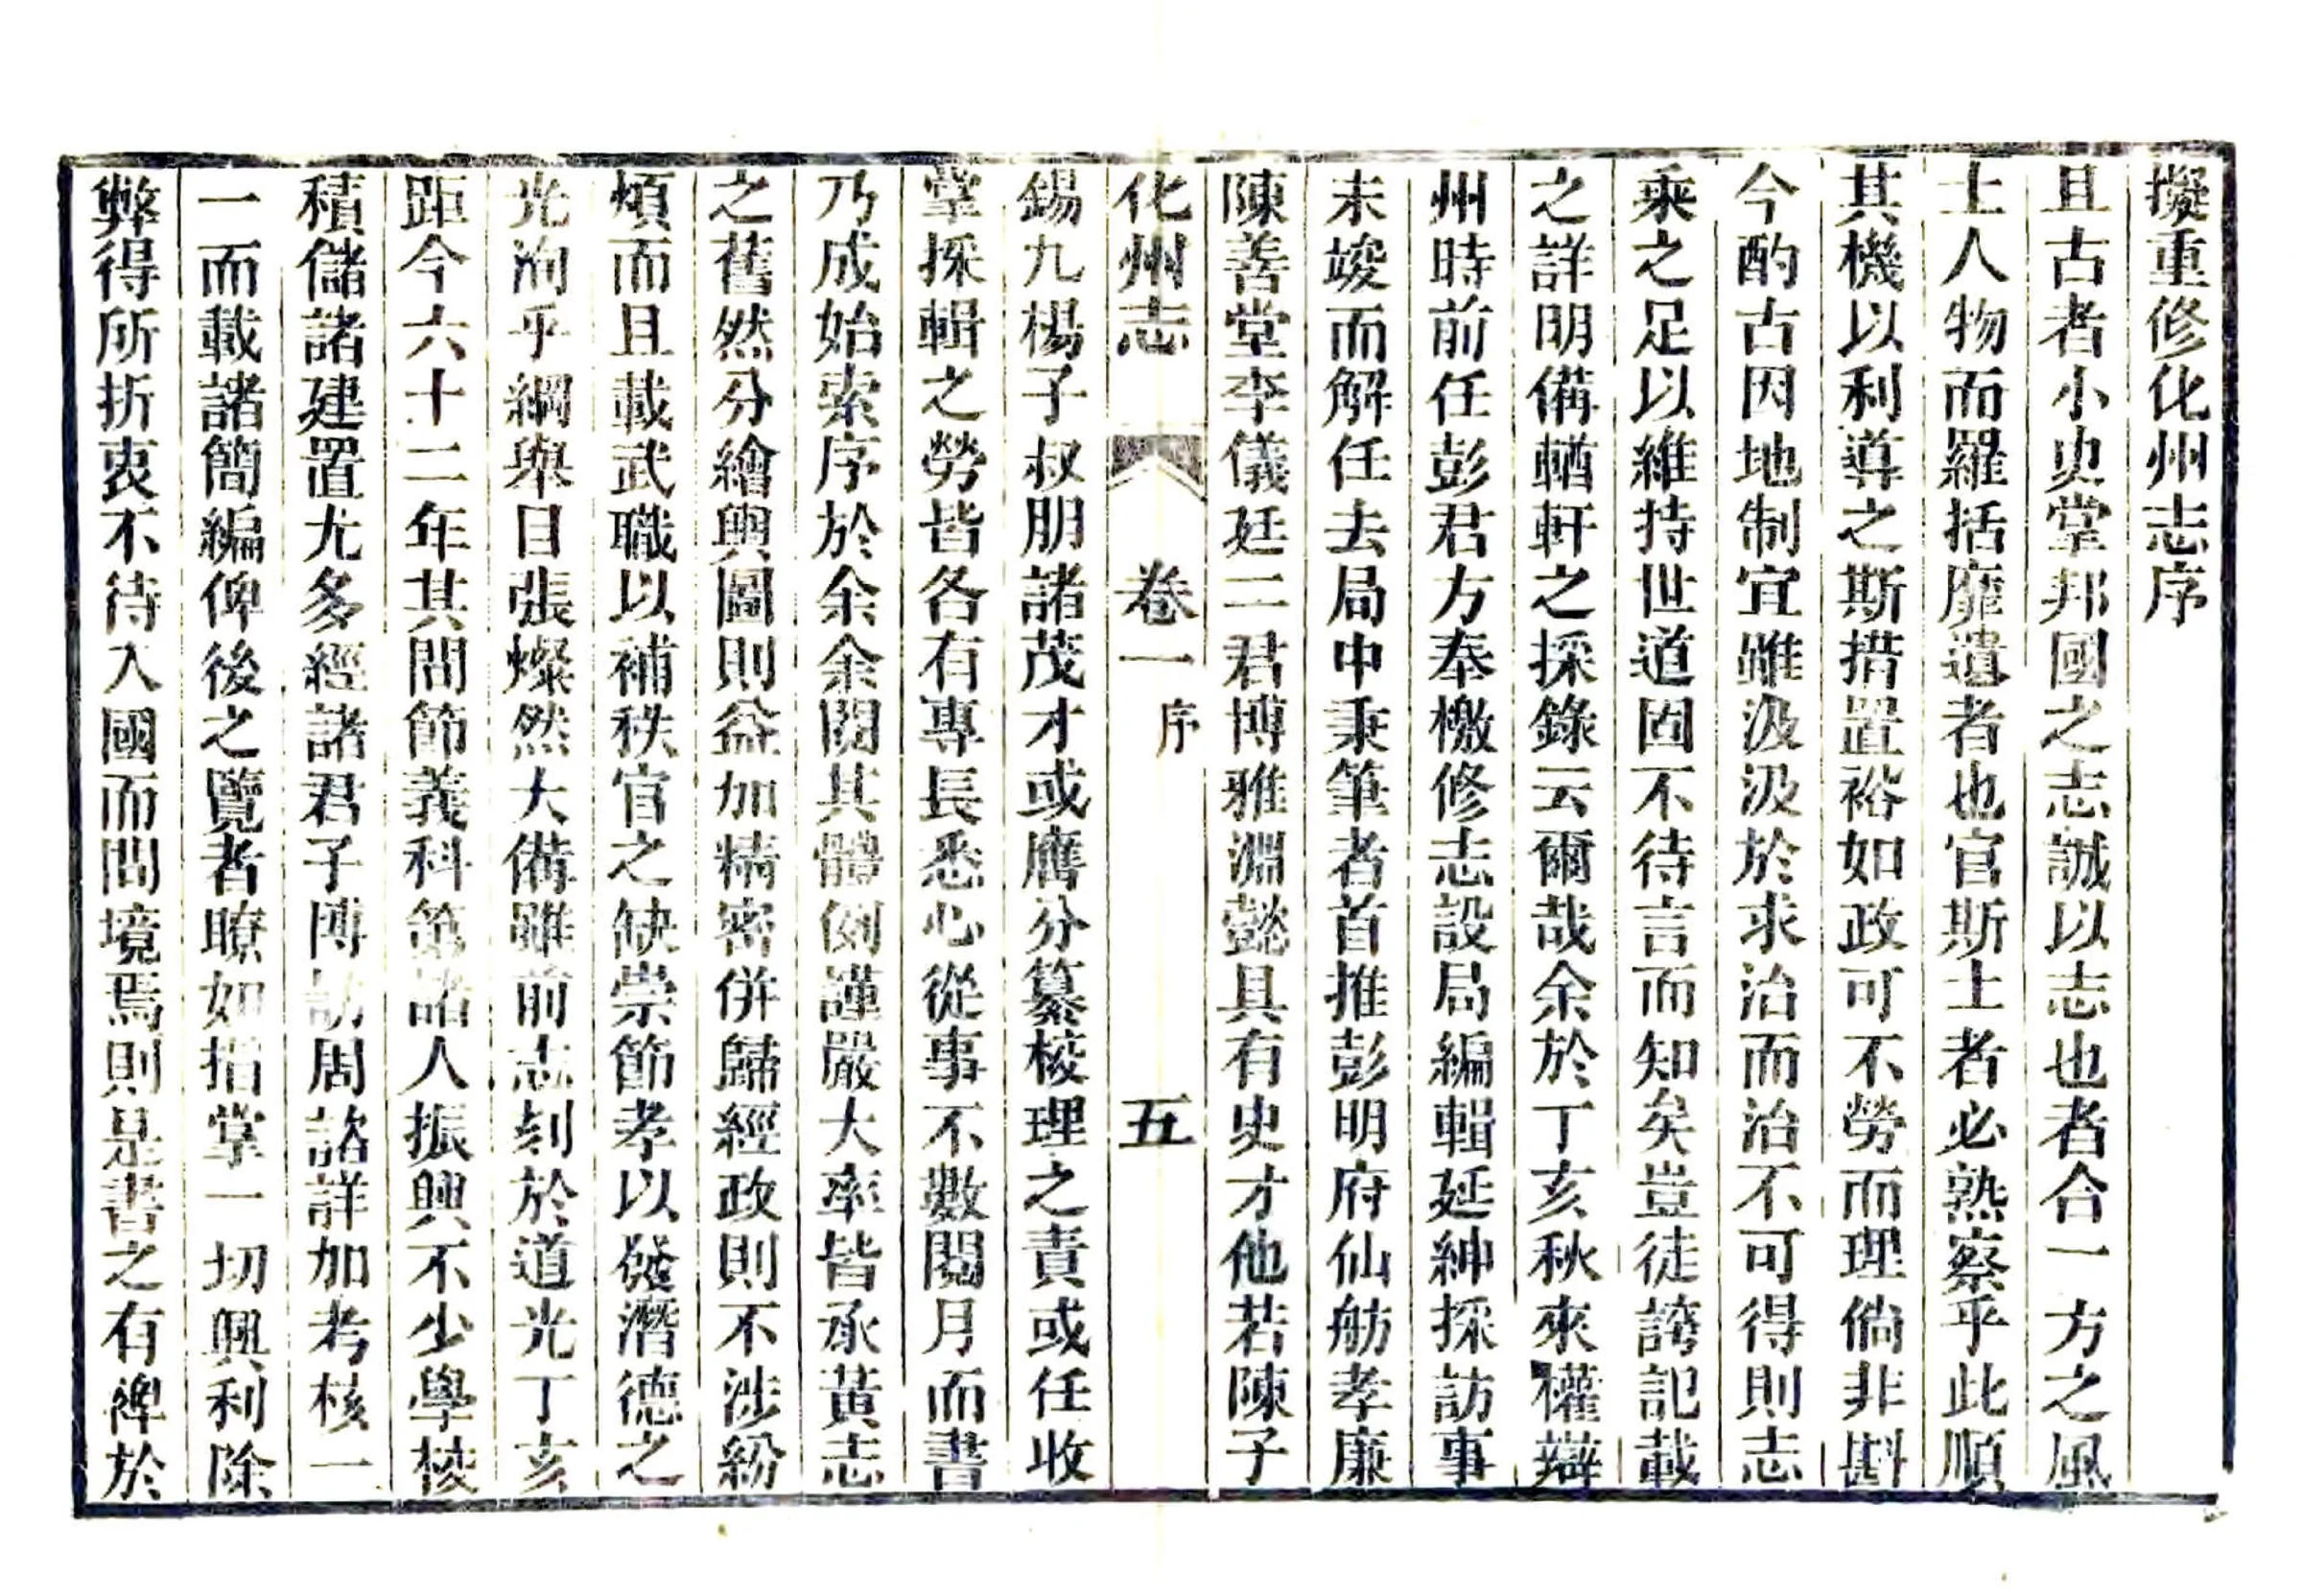 擬重修化州志序
且古者小史堂邦國之志誠以志也者合一方之風
土人物而羅括靡遺者也官斯土者必熟察乎此順
其機以利導之斯措置裕如政可不勞而理倘非斟
今酌古因地制宜雖汲汲於求治而治不可得則志
乘之足以維持世道固不待言而知矣豈徒誇記載
之詳明備輶軒之採錄云爾哉余於丁亥秋來權辯
州時前任彭君方奉檄修志設局編輯延紳採訪事
未竣而解任去局中秉筆者首推彭明府仙舫孝廉
陳善堂李儀廷二君博雅淵懿具有史才他若陳子
化州志 卷一 序 五
錫九楊子叔朋諸茂才或膺分纂校理之責或任收
掌採輯之勞皆各有專長悉心從事不數閱月而書
乃成始索序於余余閱其體例謹嚴大率皆承黃志
之舊然分繪輿圖則益加精密併歸經政則不涉紛
煩而且載武職以補秩官之缺崇節孝以發潛德之
光洵乎綱舉目張燦然大備雖前志刻於道光丁亥
距今六十二年其間節義科第諸人振興不少學校
積儲諸建置尤多經諸君子博訪周諮詳加考核一
一而載諸簡編俾後之覽者瞭如指掌一切興利除
弊得所折衷不待入國而問境焉則是書之有裨於